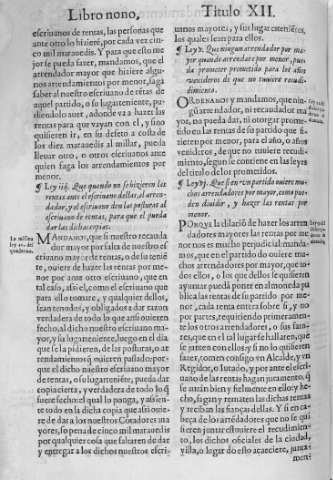 Libro nono, Titulo XII.
escriuanos de rentas, las personas que
ante otro lo hiziere, por cada vez cin-
co mil marauedis. Y para que esto me
jor se pueda saber, mandamos, que el
arrendador mayor que hiziere algu-
nos arrendamientos por menor, haga
saber al nuestro escriuano de rētas de
aquel partido, o su lugarteniente, pu-
diendolo auer, adonde va a hazer las
rentas para que vayan con el, y sino
quisieren ir, en su defeto a costa de
los diez marauedis al millar, pueda
lleuar otro, o otros escriuanos ante
quien haga los arrendamientos por
menor.
¶ Ley iiij. Que quando se hiziessen las
rentas ante el escriuano dellas, el arren-
dador, y el escriuano den las posturas al
escriuano de rentas, para que el pueda
dar las dichas copias.
MANDAMO, que si nuestro recauda
dor mayor por falta de nuestro es
criuano mayor de rentas, o de su teniē
te, ouiere de hazer las rentas por me-
nor por ante otro escriuano, que en
tal caso, assi el, como el escriuano que
para ello tomare, y qualquier dellos,
sean tenudos, y obligados a dar razon
verdadera de todo lo que ante ouieren
fecho, al dicho nuestro escriuano ma-
yor, y su lugarteniente, luego en el dia
que se la pidieren, de las posturas, o ar-
rendamientos q̄ ouieren passado: por-
que el dicho nuestro escriuano mayor
de rentas, o su lugarteniente, pueda dar
copia cierta, y verdadera de todo lo q̄
fuere fecho: el qual lo ponga, y assien-
te todo en la dicha copia que assi ouie-
re de dar a los nuestros Cōtadores ma
yores, so pena de cinco mil marauedis
por qualquier cosa que faltaren de dar
y entregar a los dichos nuestros escri
uanos mayores, y sus lugartenientes,
los quales sean para ellos.
¶ Ley v. Que ningun arrendador por ma-
yor quando arrendare por menor, pue-
da prometer prometido para los años
venideros de que no tuuiere recudi-
miento.
ORDENAMOS y mandamos, que nin-
gū arrendador, ni recaudador ma
yor, no pueda dar, ni otorgar prome-
tido en las rentas de su partido que fi-
zieren por menor, para el año, o años
venideros, de que no tuuiere recudi-
miento, segun se contiene en las leyes
del titulo de los prometidos.
¶ Ley vj. Que si en vn partido ouiere mu-
chos arrendadores por mayor, como pue-
den diuidir, y hazer las rentas por
menor.
PORQVE la dilaciō de hazer los arren
dadores mayores las rentas por me
nor nos es mucho perjudicial: manda-
mos, que en el partido do ouiere mu-
chos arrendadores por mayor, que to-
dos ellos, o los que dellos se quisieren
ayuntar puedā poner en almoneda pu
blica las rentas de su partido por me-
nor, cada renta entera sobre si, y no
por partes, requiriendo primeramen-
te los otros arrendadores, o sus fato-
res, que en el tal lugar se hallaren, que
se junten con ellos: y si no lo quisieren
fazer, tomen consigo vn Alcalde, y vn
Regidor, o Iurado, y por ante el escri-
uano de las rentas hagan juramento, q̄
se auran bien y fielmente en ello: y he-
cho, fagan y rematen las dichas rentas
y reciban las fianças dellas. Y si en ca-
beça de los arrendadores que no se qui
sieren juntar estuuiere el recudimien-
to, los dichos oficiales de la ciudad,
villa, o lugar do esto acaeciere, junta